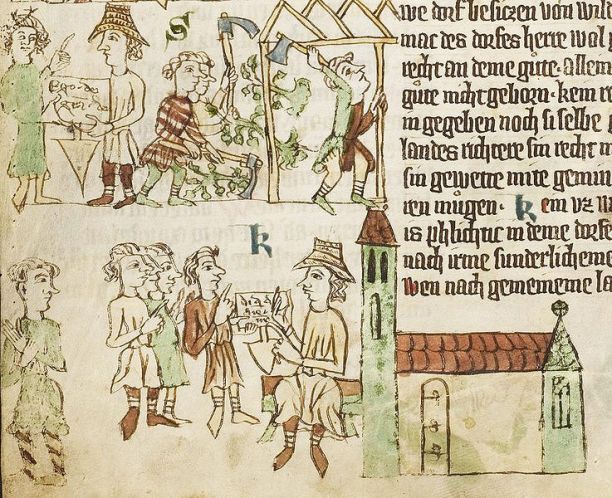 S
we dorf besiczen von wil
mac des dorfes herre wol
recht an deme gůte · allem
gůte nicht geborn · kein
in gegeben noch si selbe
landes richtere sin recht
sin gewette mite
ren můgen · kein vz w
is phlichtic in deme dorfe
nach irme sunderlicheme
wen nach gemeineme la
K